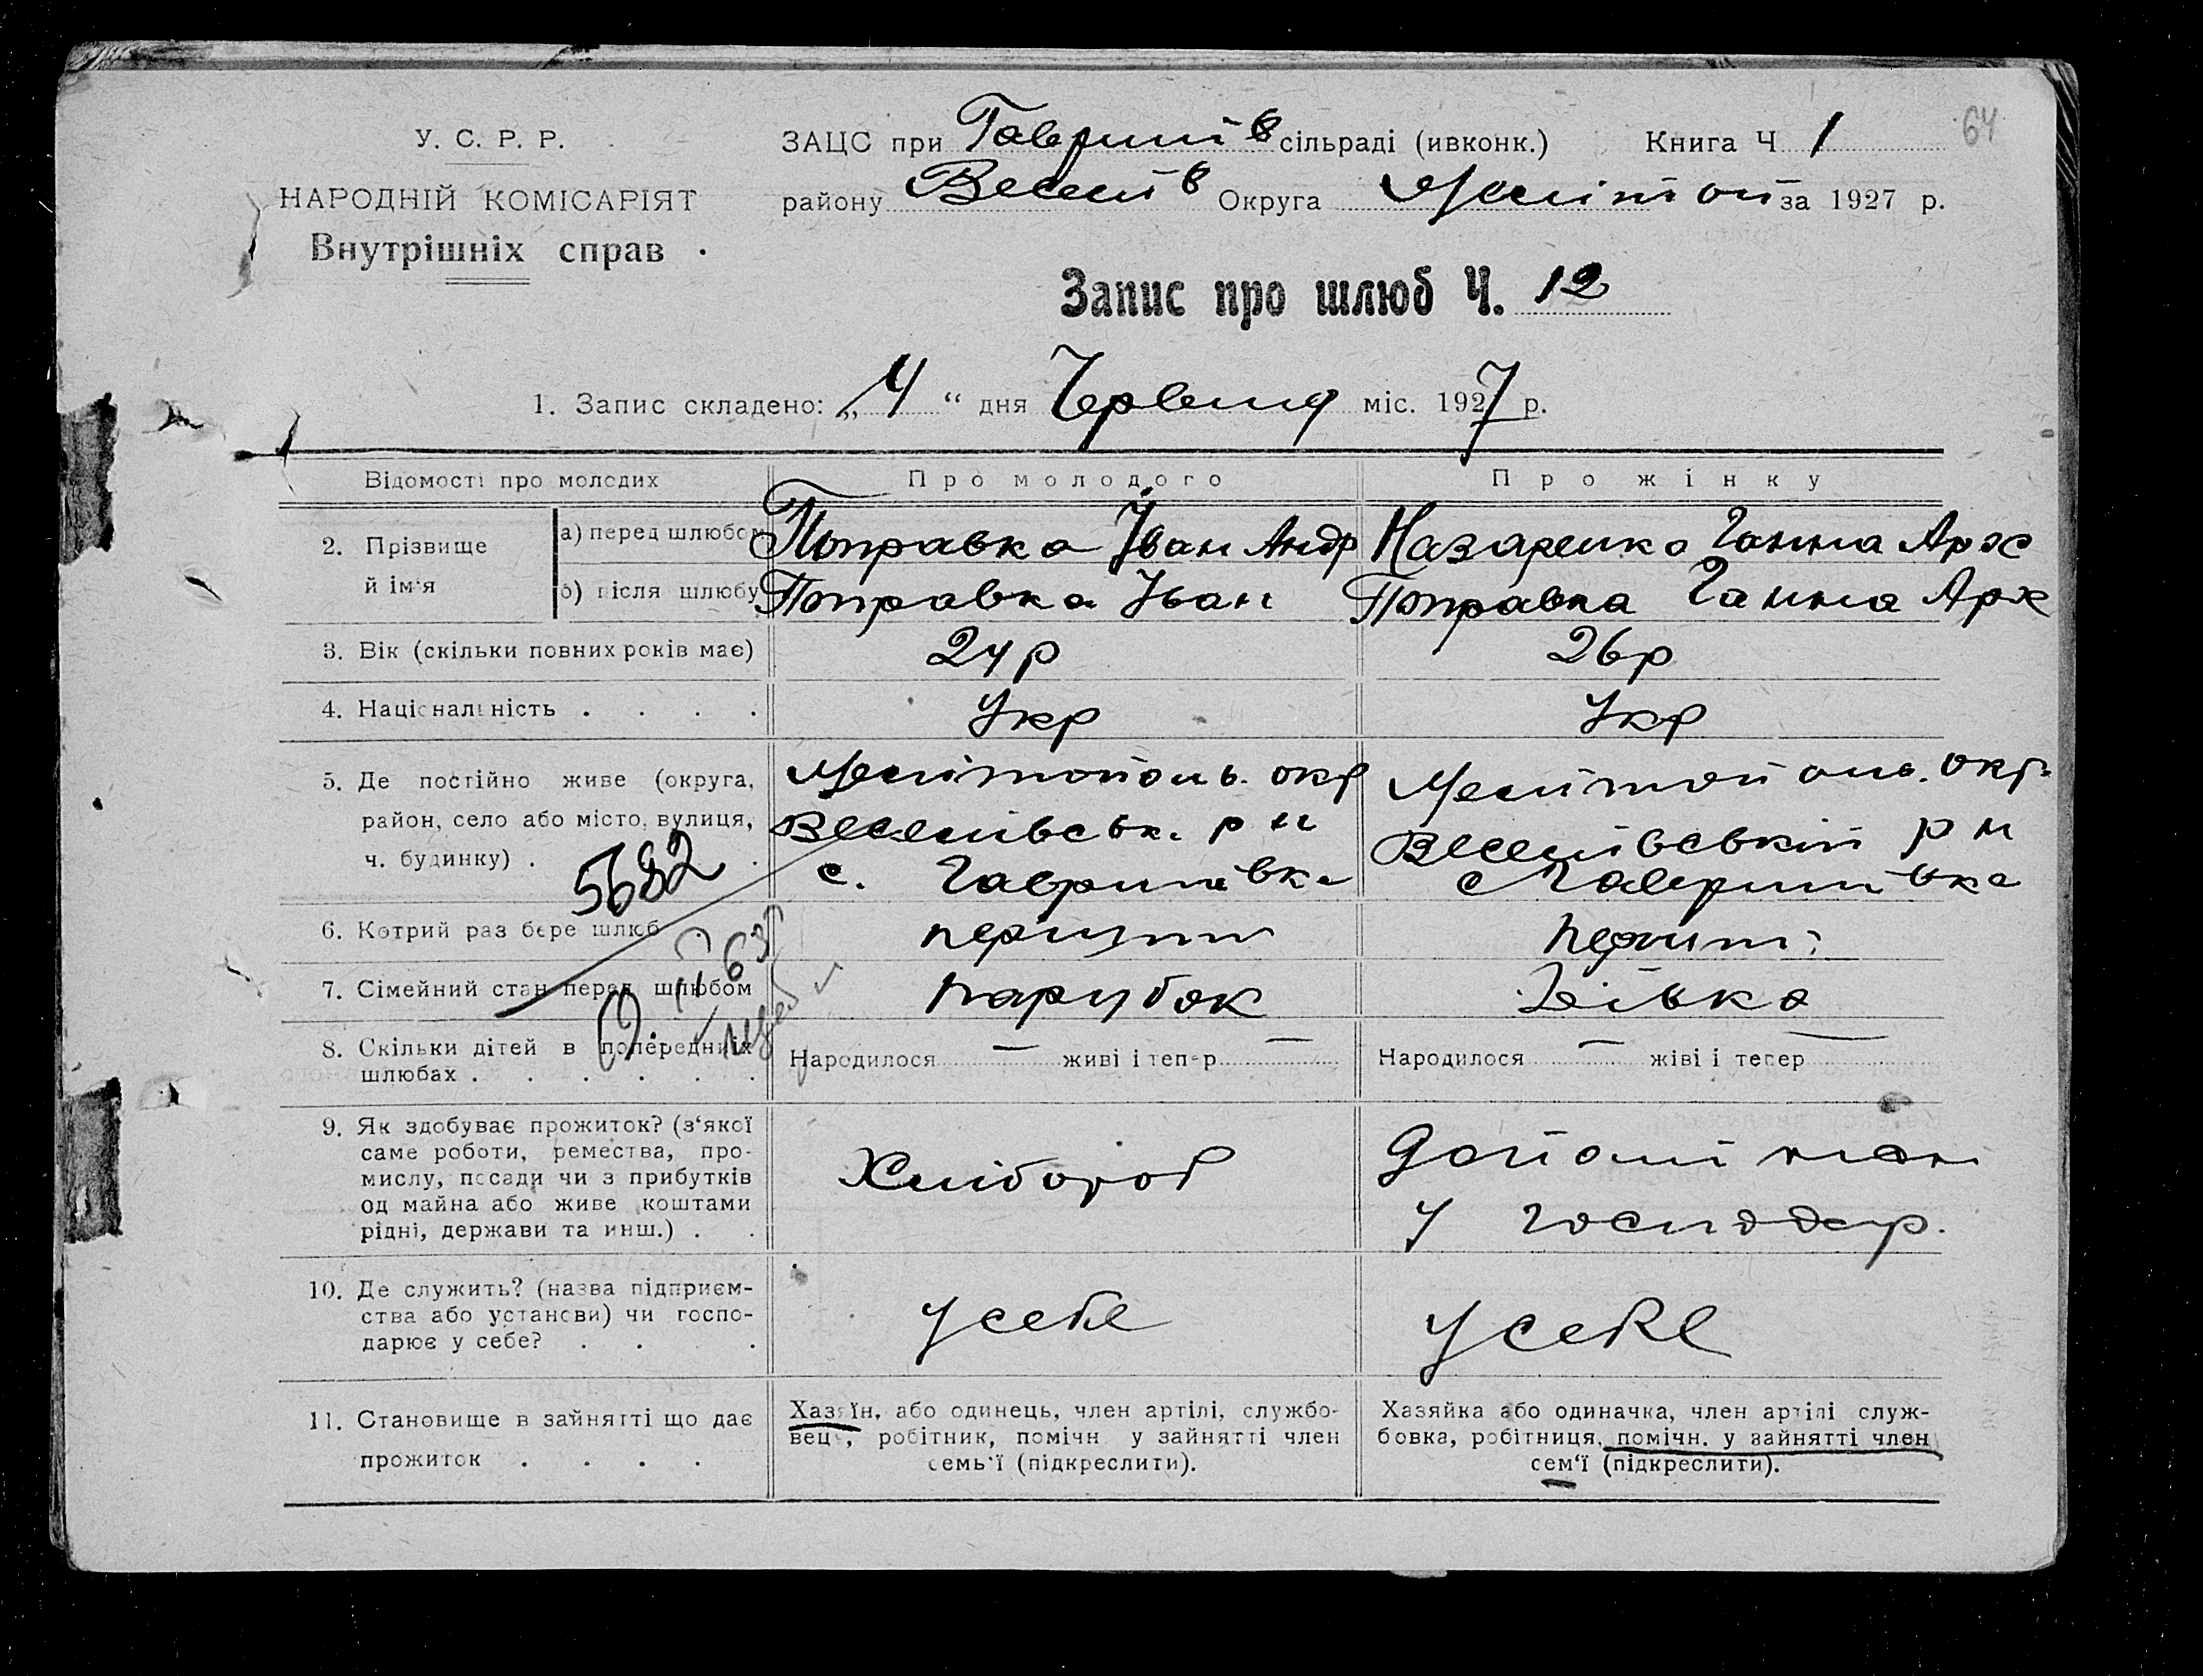 64
У. С. Р. Р.
НАРОДНІЙ КОМІСАРІЯТ
Внутрішніх справ
ЗАЦС при Гаврилів сільраді (ивконк.) Книга Ч 1
району Веселів Округа Меліtoп за 1927 р.
Запис про шлюб Ч. 12
1. Запис складено: „4“ дня Червня міс. 1927 р.
Відомості про молодих Про молодого Про жінку
2. Прізвище й ім‘я
а) перед шлюбом Поправка Іван Андр Назаренко Ганна Арх
б) після шлюбу Поправка Іван Поправка Ганна Арх
3. Вік (скільки повних років має) 24 р 26 р
4. Національність . . . . Укр Укр
5. Де постійно живе (округа, Мелітополь. окр Мелітополь. окр.
район, село або місто, вулиця, Веселівськ. р н Веселівський р н
ч. будинку) . с. Гаврилівка с Гаврилівка
5682
6. Котрий раз бере шлюб перший
7. Сімейний стан перед шлюбом парубок Дівка
8. Скільки дітей в попередніх Народилося — живі і тепер — Народилося — жіві і тепер —
шлюбах . . . . . .
9. Як здобуває прожиток? (з‘якої
саме роботи, ремества, про-
мислу, посади чи з прибутків
од майна або живе коштами
рідні, держави та инш.) . .
Хлібороб
у господар.
10. Де служить? (назва підприєм-
ства або установи) чи госпо-
дарює у себе? . . .
у себе у себе
11. Становище в зайнятті що дає
прожиток . . . .
Хазяїн, або одинець, член артілі, службо-
вець, робітник, помічн. у зайнятті член
семь‘ї (підкреслити).
Хазяйка або одиначка, член артілі служ-
бовка, робітниця, помічн. у зайнятті член
сем‘ї (підкреслити).